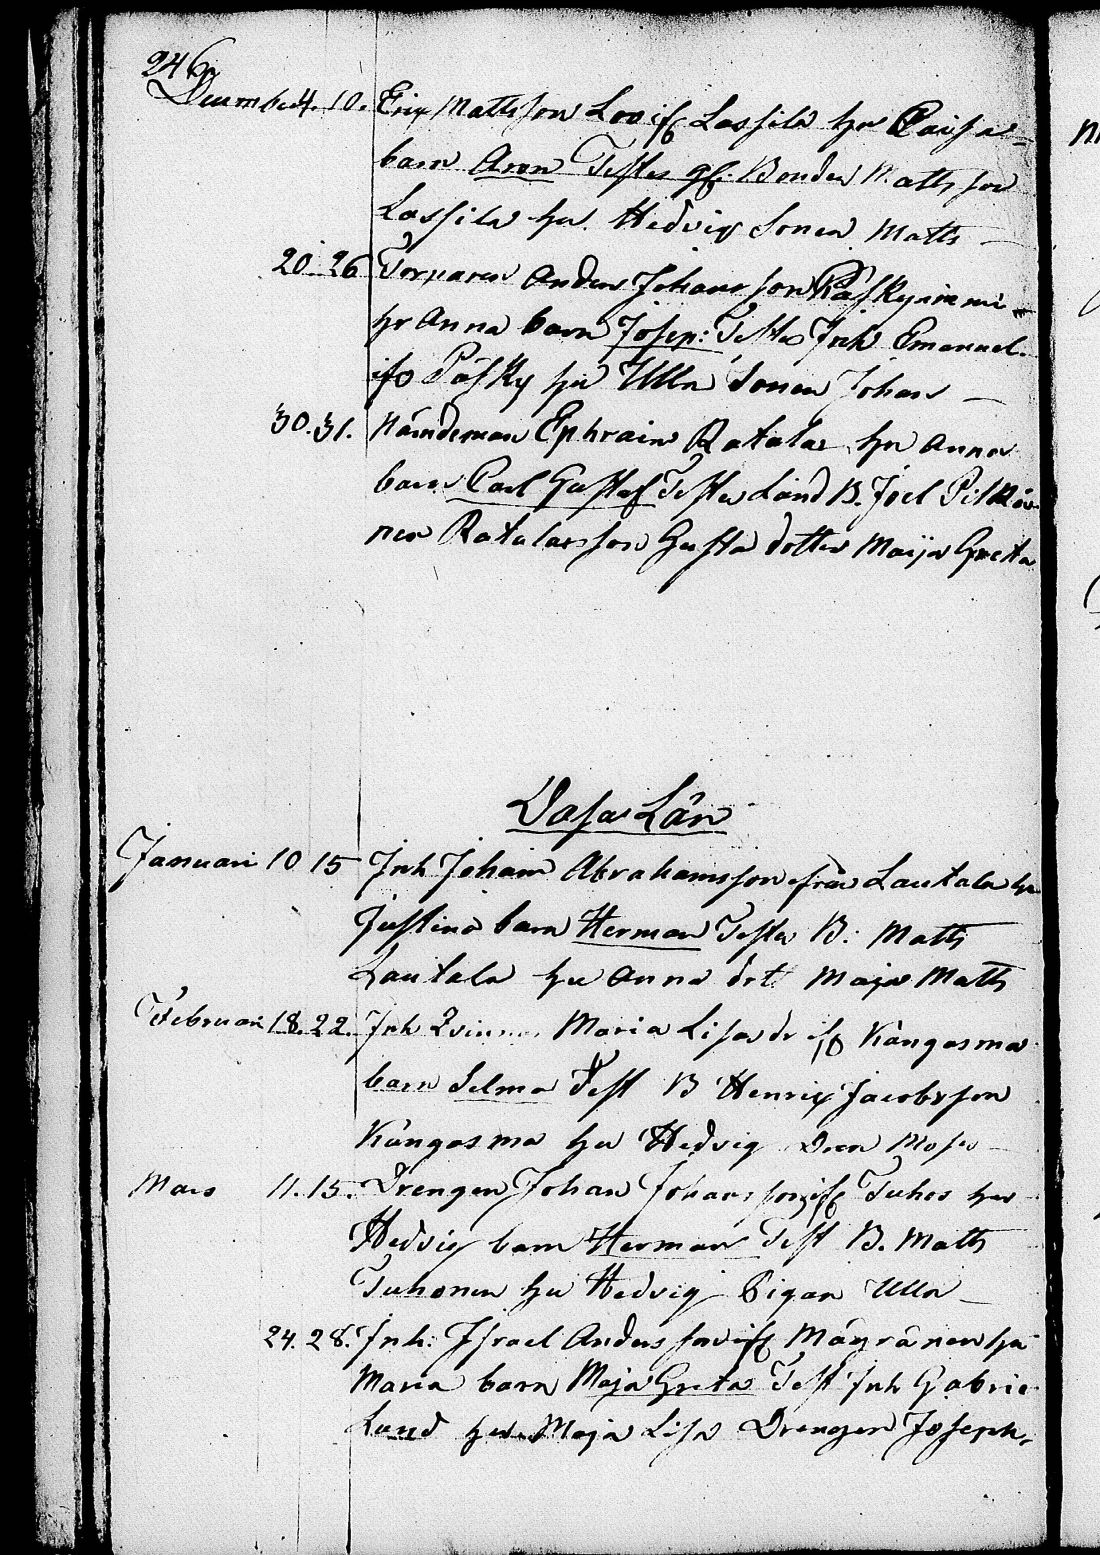 246
December 4. 10. Eric Mattsson Lassila hu Caisa
barn Aron Testes Bonden Mattsson
Lassila hu. Hedvig Sonen Matts
20 26 Torparen Anders Johansson Päskyniemi
hu Anna barn Josep: Testes Inh Emanuel
Päsky hu Ulla Sonen Johan
30. 31. Nämdeman Ephraim Ratala hu Anna
barn Carl Gustaf Testes Land B. Joel Pitkä
nen Gusta dotter Maija Greta
Vasa Län
Januari 10 15 Inh Johan Abrahamsson från Lautala hu
Justina barn Herman Testes B: Matts
Lautala hu Anna dott Maja Matts
Februari 18. 22. Inh Maria Lisasdr Kangasma
barn Selma Test B Henric Jacobsson
Kangasma hu Hedvig
Mars 11. 15. Drengen Johan Johansson Tuhos hu
Hedvig barn Herman Test B. Matts
Tuhonen hu Hedvig Pigan Ulla
24. 28. Inh: Israel Anders Mäyränen hu
Maria barn Maja Greta Test Inh Gabrie
Lund hu Maja Lisa Drengen Joseph